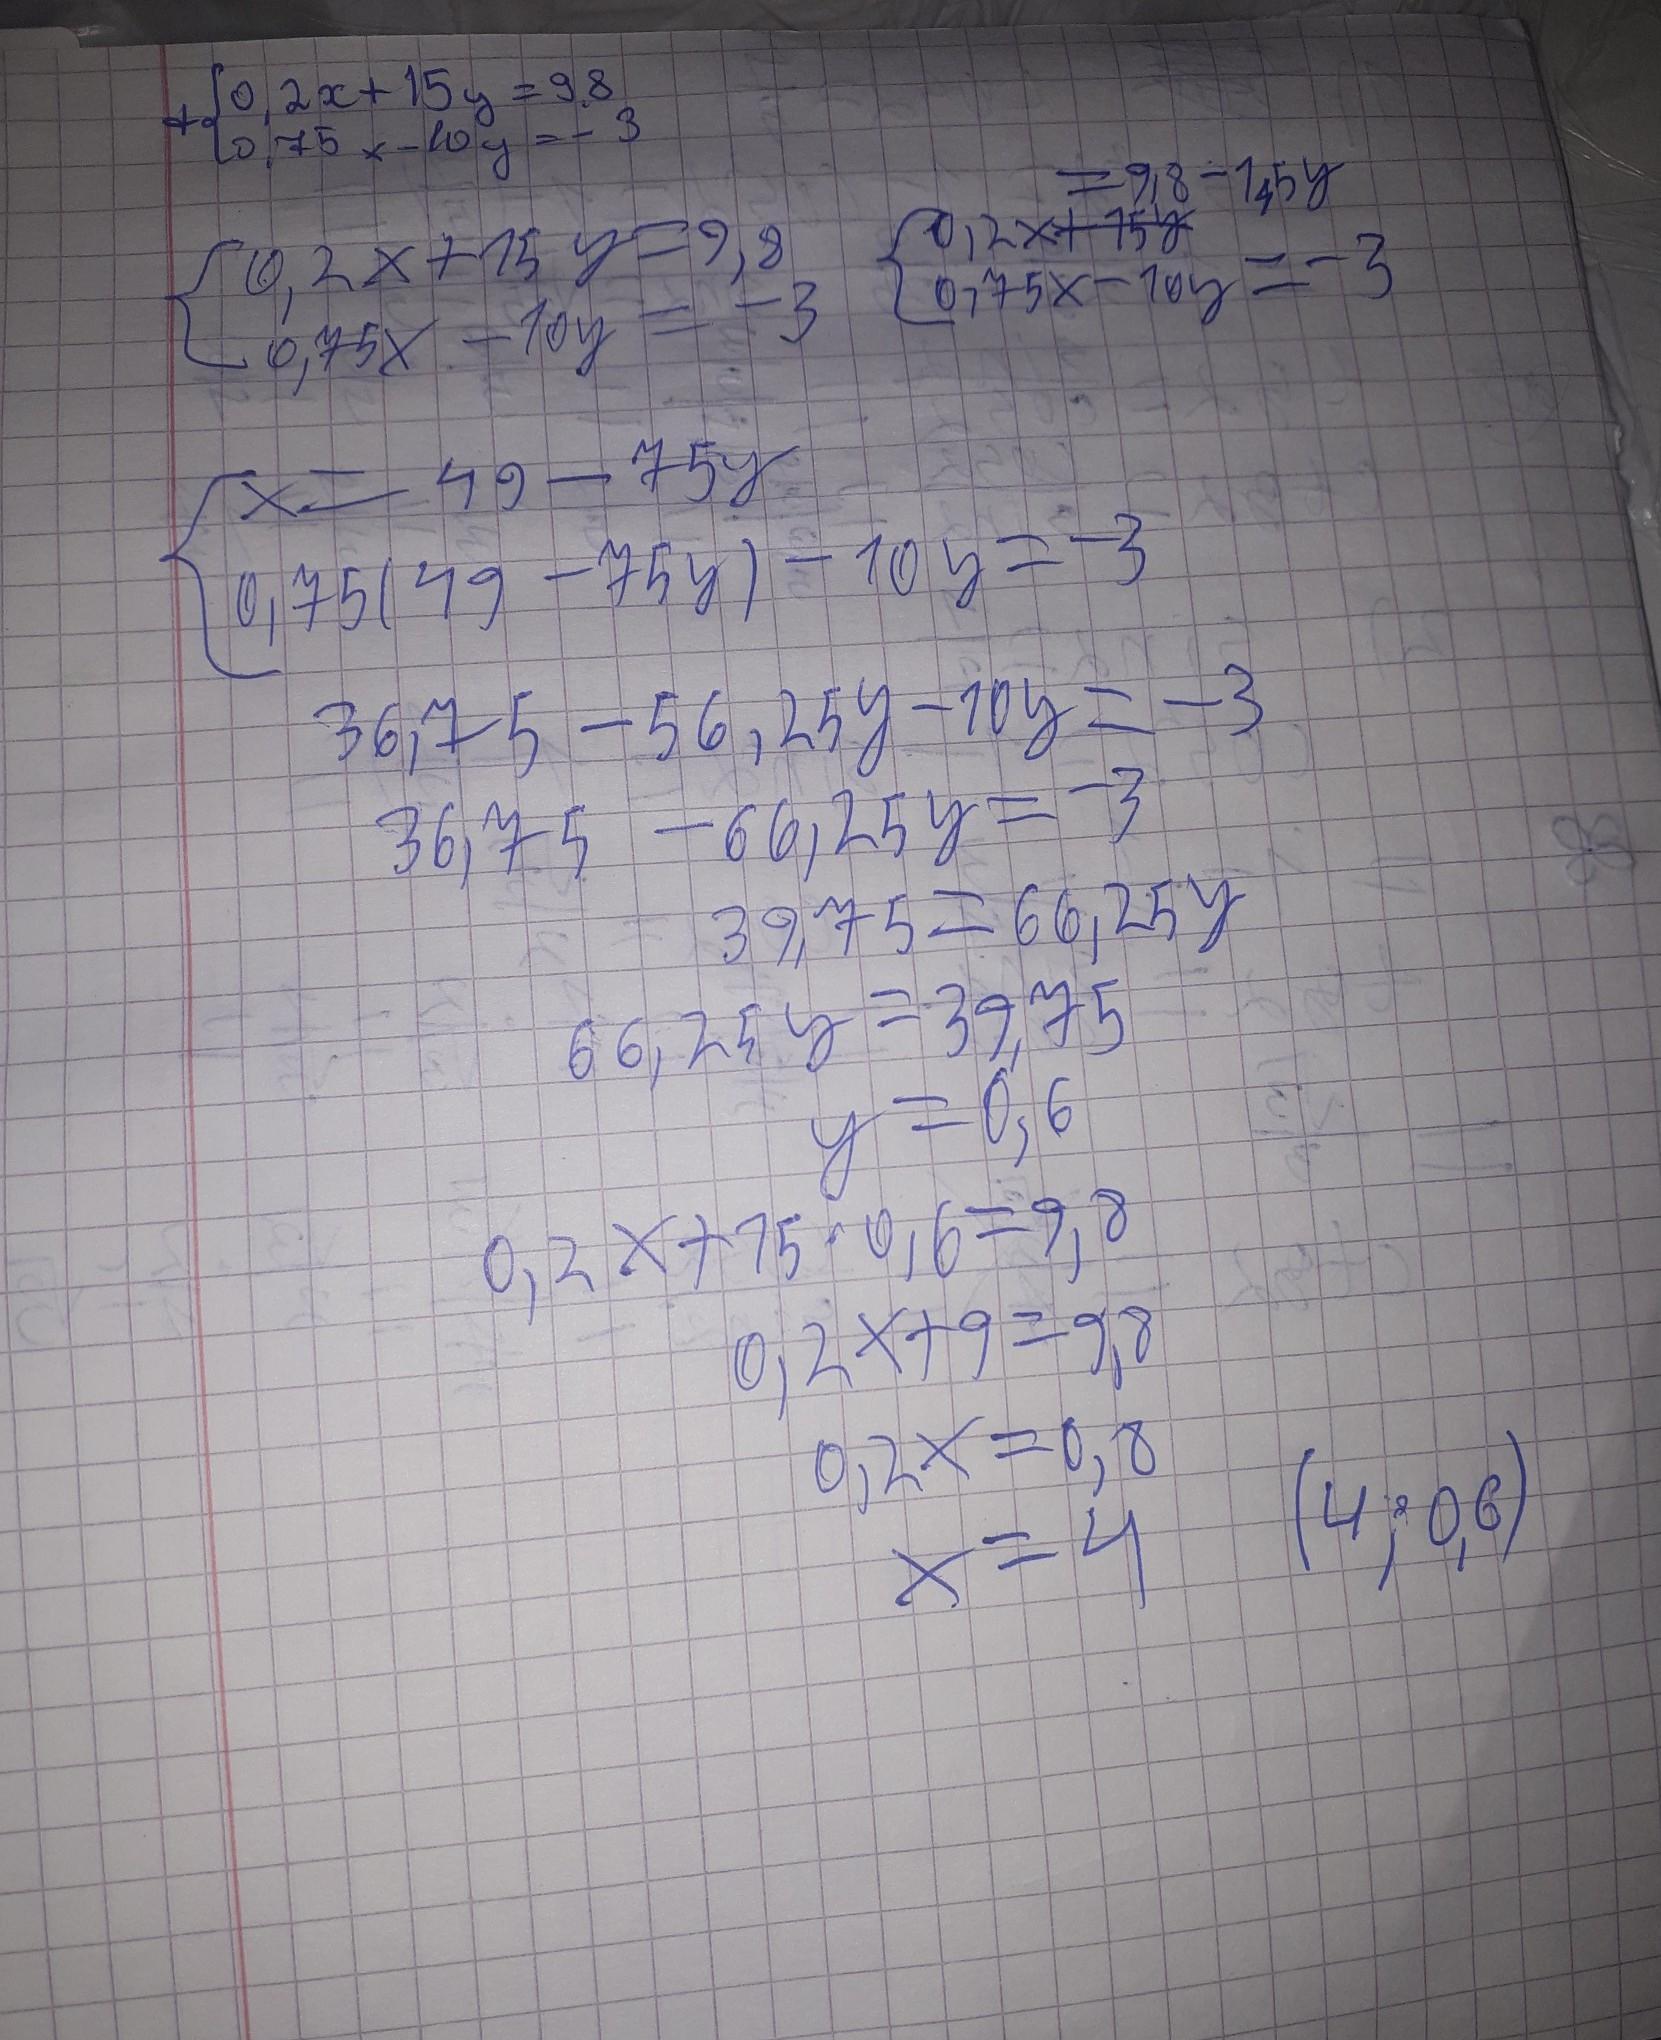 +{0,2x+15y=9,8
0,75x-10y=-3
{0,2x+15y=9,8
0,75x-10y=-3
=9,8-15y
{0,2x+15y
0,75x-10y=-3
{x=49-75y
0,75(49-75y)-10y=-3
36,75-56,25y-10y=-3
36,75-66,25y=-3
39,75=66,25y
66,25y=39,75
y=0,6
0,2x+15·0,6=9,8
0,2x+9=9,8
0,2x=0,8
x=4 (4;0,6)